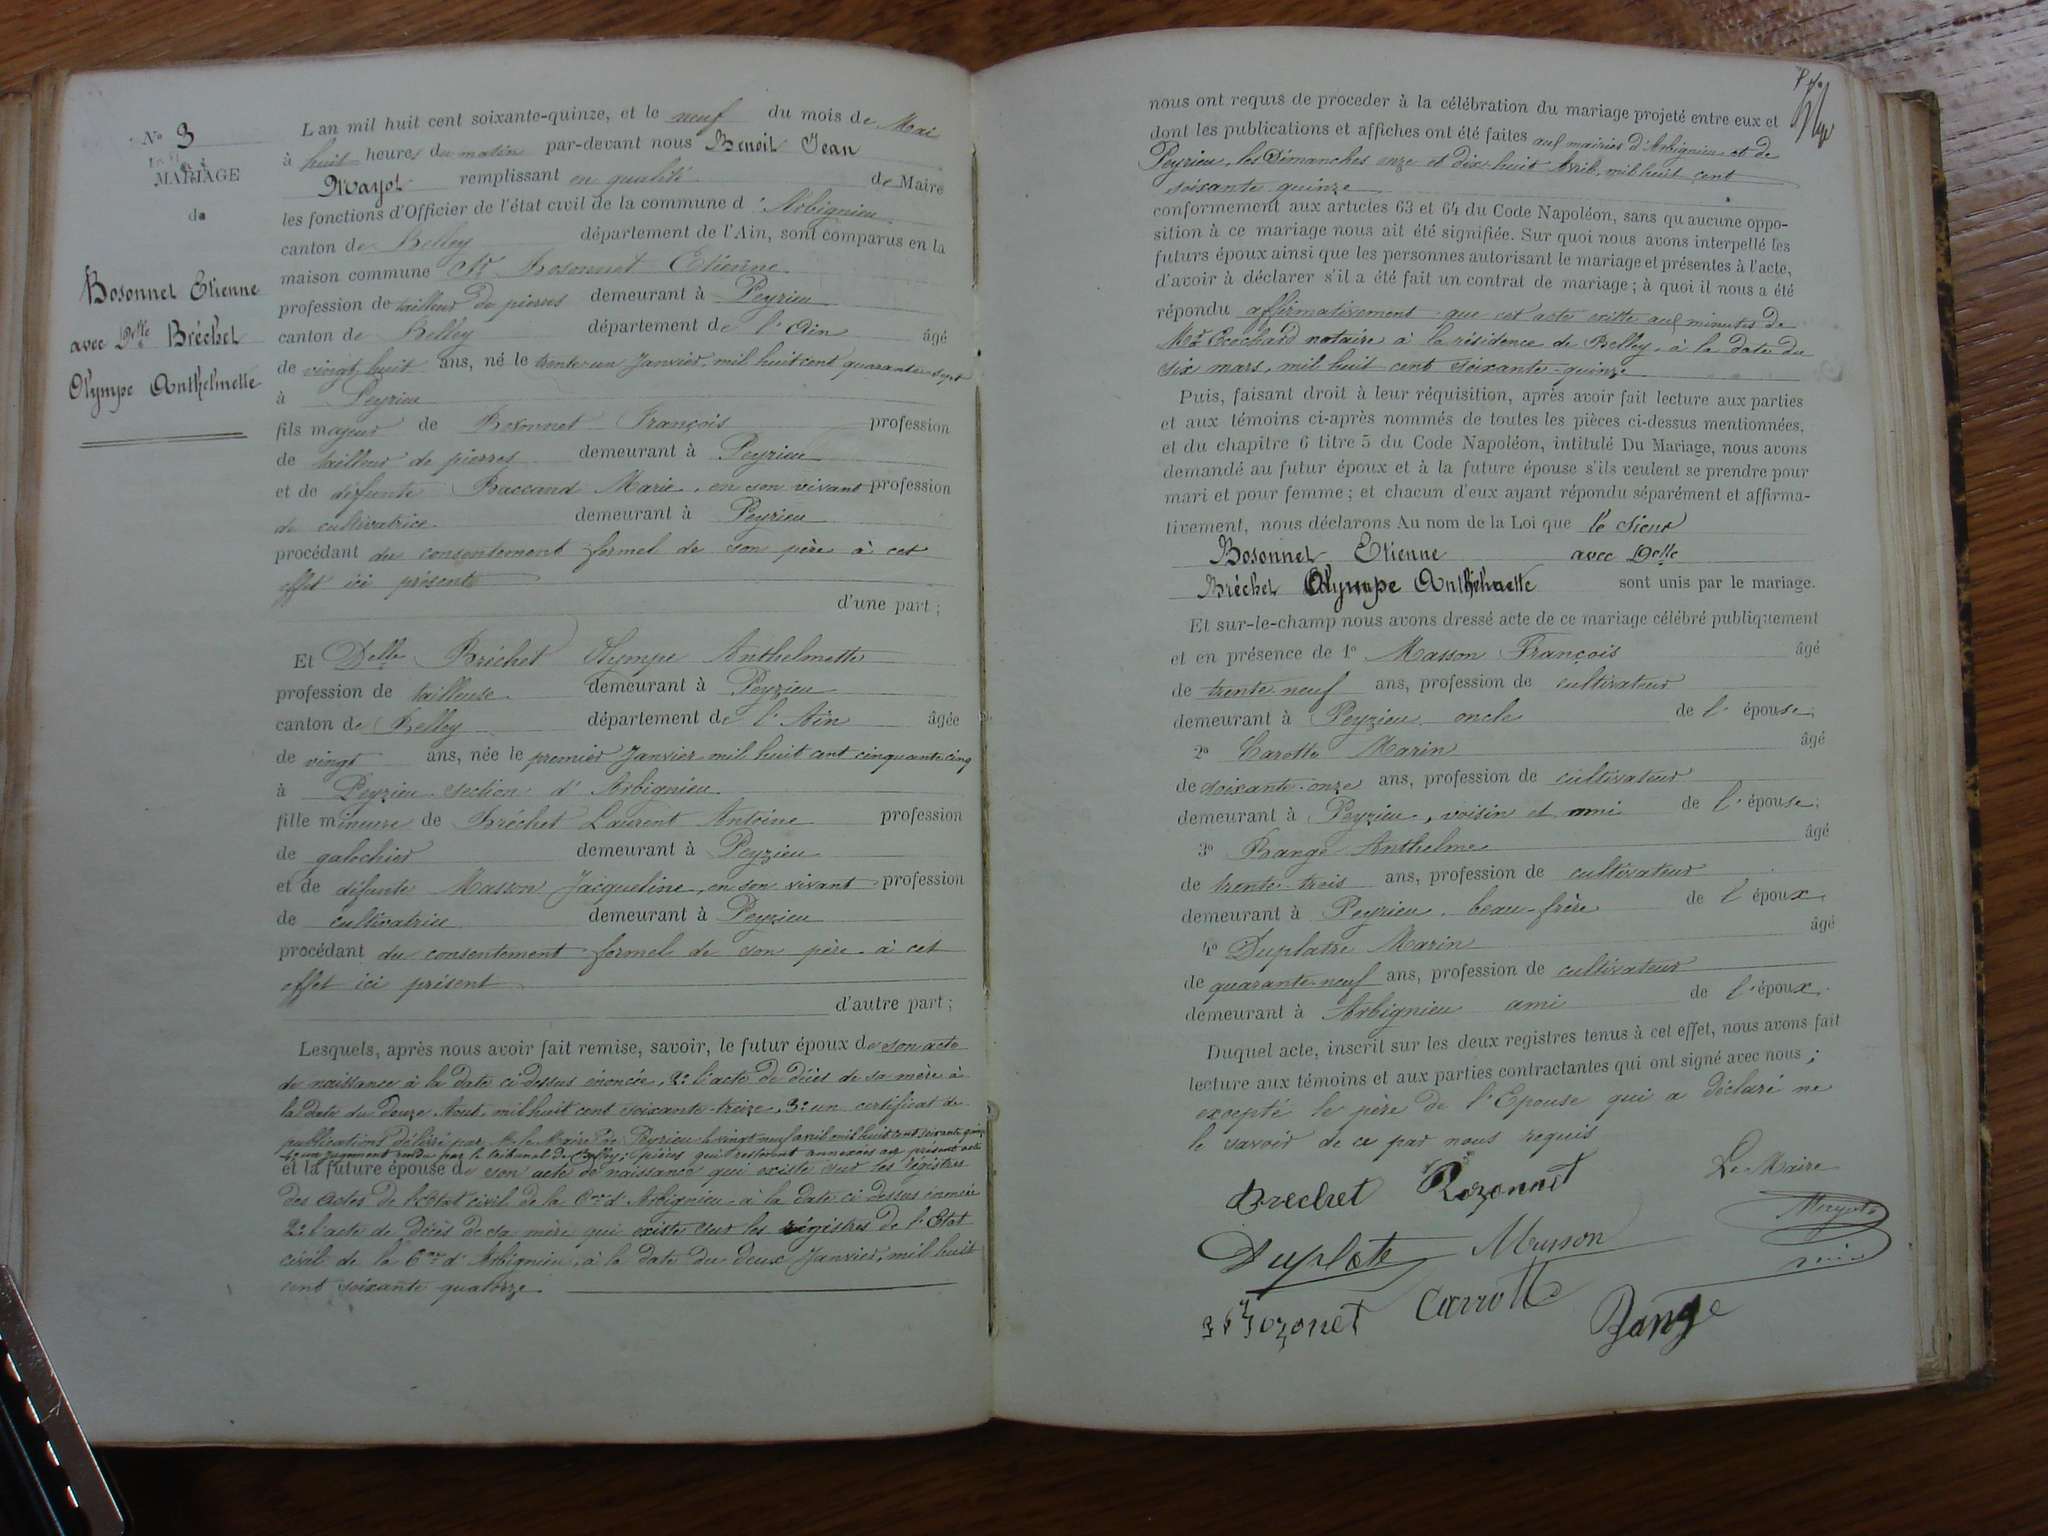 N° 3
MARIAGE
de
Bosonnet Etienne
avec Dlle Bréchet
Olympe Anthelmette
L'an mil huit cent soixante-quinze, et le neuf du mois de Mai
à huit heures du matin par-devant nous Benoit Jean
Mayot remplissant en qualité de Maire
les fonctions d'Officier de l'état civil de la commune d'Arbignieu
canton de Belley département de l'Ain, sont comparus en la
maison commune Sr Bosonnet Etienne
profession de tailleur de pierres demeurant à Peyzieu
canton de Belley département de l'Ain âgé
de vingt huit ans, né le trente un Janvier mil huit cent quarante-sept
à Peyzieu
fils majeur de Bosonnet François profession
de tailleur de pierres demeurant à Peyzieu
et de défunte Baccand Marie, en son vivant profession
de cultivatrice demeurant à Peyzieu
procédant du consentement formel de son père à cet
effet ici présent
d'une part;
Et Delle Bréchet Olympe Anthelmette
profession de tailleuse demeurant à Peyzieu
canton de Belley département de l'Ain âgée
de vingt ans, née le premier Janvier mil huit cent cinquante cinq
à Peyzieu section d'Arbignieu
fille mineure de Bréchet Laurent Antoine profession
de galochier demeurant à Peyzieu
et de défunte Masson Jacqueline, en son vivant profession
de cultivatrice demeurant à Peyzieu
procédant du consentement formel de son père à cet
effet ici présent
d'autre part;
Lesquels, après nous avoir fait remise, savoir, le futur époux de son acte
de naissance à la date ci-dessus énoncée, 2° l'acte de décès de sa mère à
la date du douze Aout mil huit cent soixante-treize, 3° un certificat de
publications délivré par M. le Maire de Peyzieu le vingt neuf avril mil huit cent soixante quinze
4° un jugement rendu par le tribunal de Belley; pièces qui resteront annexées au présent acte
et la future épouse de son acte de naissance qui existe sur les régistres
des actes de l'Etat civil de la Cne d'Arbignieu à la date ci dessus énoncée
2° l'acte de Décès de sa mère qui existe sur les régistres de l'Etat
civil de la Cne d'Arbignieu, à la date du deux Janvier, mil huit
cent soixante quatorze
nous ont requis de proceder à la célébration du mariage projeté entre eux et
dont les publications et affiches ont été faites aux mairies d'Arbignieu et de
Peyzieu, les Dimanches onze et dix-huit Avril, mil huit cent
soixante quinze
conformement aux articles 63 et 64 du Code Napoléon, sans qu'aucune oppo-
sition à ce mariage nous ait été signifiée. Sur quoi nous avons interpellé les
futurs époux ainsi que les personnes autorisant le mariage et présentes à l'acte,
d'avoir à déclarer s'il a été fait un contrat de mariage; à quoi il nous a été
répondu affirmativement que cet acte existe aux minutes de
Me notaire à la résidence de Belley, à la date du
six mars, mil huit cent soixante-quinze
Puis, faisant droit à leur réquisition, après avoir fait lecture aux parties
et aux témoins ci-après nommés de toutes les pièces ci-dessus mentionnées,
et du chapitre 6 titre 5 du Code Napoléon, intitulé Du Mariage, nous avons
demandé au futur époux et à la future épouse s'ils veulent se prendre pour
mari et pour femme; et chacun d'eux ayant répondu séparément et affirma-
tivement, nous déclarons Au nom de la Loi que le Sieur
Bosonnet Etienne avec Delle
Bréchet Olympe Anthelmette sont unis par le mariage.
Et sur-le-champ nous avons dressé acte de ce mariage célébré publiquement
et en présence de 1° Masson François âgé
de trente-neuf ans, profession de cultivateur
demeurant à Peyzieu oncle de l'épouse;
2° Carotte Marin âgé
de soixante-onze ans, profession de cultivateur
demeurant à Peyzieu, voisin et ami de l'épouse;
3° Bange Anthelme âgé
de trente-trois ans, profession de cultivateur
demeurant à Peyzieu, beau-frère de l'époux,
4° Duplatre Marin âgé
de quarante-neuf ans, profession de cultivateur
demeurant à Arbignieu ami de l'époux.
Duquel acte, inscrit sur les deux registres tenus à cet effet, nous avons fait
lecture aux témoins et aux parties contractantes qui ont signé avec nous;
excepté le père de l'Epouse qui a déclaré ne
le savoir de ce par nous requis
Le Maire
Brechet Bozonnet
Mayot
Duplatre Masson
Bozonet Carrott Bange